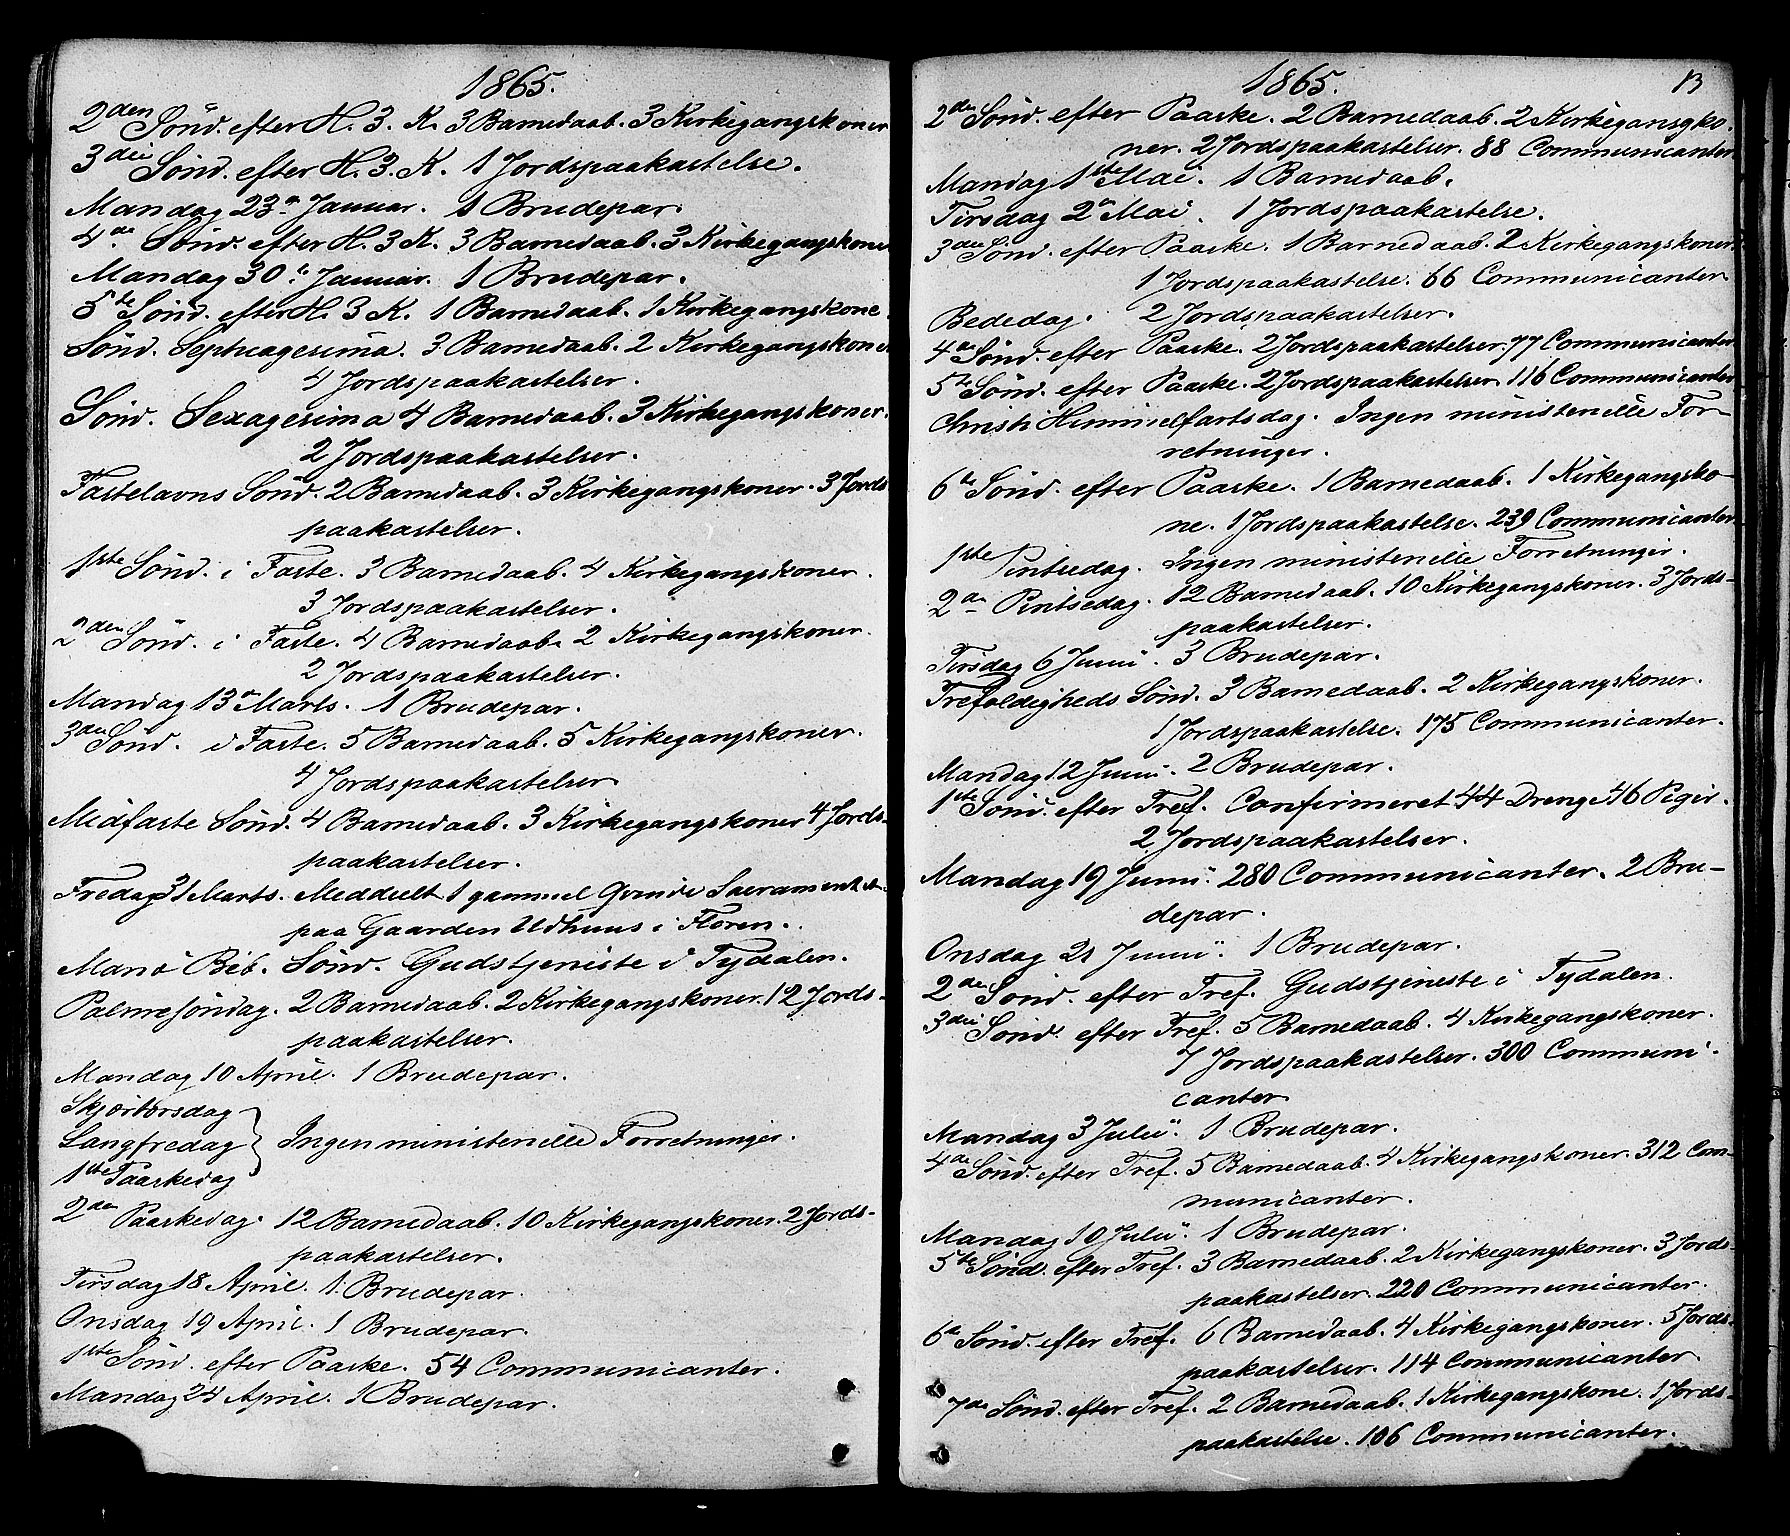 1865.
2den Sönd. efter H. 3. K. 3 Barnedaab. 3 Kirkegangskoner
3die Sönd. efter H. 3. K. 1 Jordspaakastelse.
Mandag 23de Januar. 1 Brudepar.
4de Sönd. efter H. 3 K. 3 Barnedaab. 3 Kirkegangskoner
Mandag 30te Januar. 1 Brudepar.
5te Sönd. efter H. 3 K. 1 Barnedaab. 1 Kirkegangskone.
Sönd. Septuagesima. 3 Barnedaab. 2 Kirkegangskoner
4 Jordspaakastelser.
Sönd. Sexagesima 4 Barnedaab. 3 Kirkegangskoner.
2 Jordspaakastelser.
Fastelavns Sönd. 2 Barnedaab. 3 Kirkegangskoner. 3 Jords
paakastelser.
1ste Sönd. i Faste. 3 Barnedaab. 4 Kirkegangskoner.
3 Jordspaakastelser.
2den Sönd. i Faste. 4 Barnedaab. 2 Kirkegangskoner.
2 Jordspaakastelser.
Mandag 13de Marts. 1 Brudepar.
3die Sönd. i Faste. 5 Barnedaab. 5 Kirkegangskoner.
4 Jordspaakastelser
Midfaste Sönd. 4 Barnedaab. 3 Kirkegangskoner 4 Jords-
paakastelser.
Fredag 31 Marts. Meddeelt 1 gammel Qvinde Sacramentet
paa Gaarden Udhuus i Floren.
Mariæ Beb. Sönd. Gudstjeniste i Tydalen.
Palmesöndag. 2 Barnedaab. 2 Kirkegangskoner. 12 Jords-
paakastelser.
Mandag 10 April. 1 Brudepar.
Skjærtorsdag
Langfredag } Ingen ministerielle Forretninger.
1ste Paaskedag
2den Paaskedag. 12 Barnedaab. 10 Kirkegangskoner. 2 Jords-
paakastelser.
Tirsdag 18 April. 1 Brudepar.
Onsdag 19 April. 1 Brudepar.
1ste Sönd. efter Paaske. 54 Communicanter.
Mandag 24 April. 1 Brudepar.
1865. 13
2den Sönd. efter Paaske. 2 Barnedaab. 2 Kirkegansgko-
ner. 2 Jordspaakastelser. 88 Communicanter
Mandag 1ste Mai. 1 Barnedaab.
Tirsdag 2de Mai. 1 Jordspaakastelse.
3die Sönd. efter Paaske. 1 Barnedaab. 2 Kirkegangskoner.
1 Jordspaakastelse. 66 Communicanter
Bededag. 2 Jordspaakastelser.
4de Sönd. efter Paaske. 2 Jordspaakastelser. 77 Communicanter
5te Sönd. efter Paaske. 2 Jordspaakastelser. 116 Communicanter
Christi Himmelfartsdag. Ingen ministerielle For-
retninger.
6te Sönd. efter Paaske. 1 Barnedaab. 1 Kirkegangsko-
ne. 1 Jordspaakastelse. 239 Communicanter
1ste Pintsedag. Ingen ministerielle Forretninger.
2den Pintsedag. 12 Barnedaab. 10 Kirkegangskoner. 3 Jords-
paakastelser.
Tirsdag 6 Junii. 3 Brudepar.
Trefoldigheds Sönd. 3 Barnedaab. 2 Kirkegangskoner.
1 Jordspaakastelse. 175 Communicanter.
Mandag 12 Junii. 2 Brudepar.
1ste Sönd. efter Tref. Confirmeret 44 Drenge 46 Piger.
2 Jordspaakastelser.
Mandag 19 Junii. 280 Communicanter. 2 Bru-
depar.
Onsdag 21 Junii. 1 Brudepar.
2den Sönd. efter Tref. Gudstjeneste i Tydalen.
3die Sönd. efter Tref. 5 Barnedaab. 4 Kirkegangskoner.
7 Jordspaakastelser. 300 Communi-
canter
Mandag 3 Julii. 1 Brudepar.
4de Sönd. efter Tref. 5 Barnedaab. 4 Kirkegangskoner. 312 Com-
municanter.
Mandag 10 Julii. 1 Brudepar.
5te Sönd. efter Tref. 3 Barnedaab. 2 Kirkegangskoner. 3 Jords-
paakastelser. 220 Communicanter.
6te Sönd. efter Tref. 6 Barnedaab. 4 Kirkegangskoner. 5 Jords-
paakastelser. 114 Communicanter.
7de Sönd. efter Tref. 2 Barnedaab. 1 Kirkegangskone. 1 Jords-
paakastelse. 106 Communicanter.